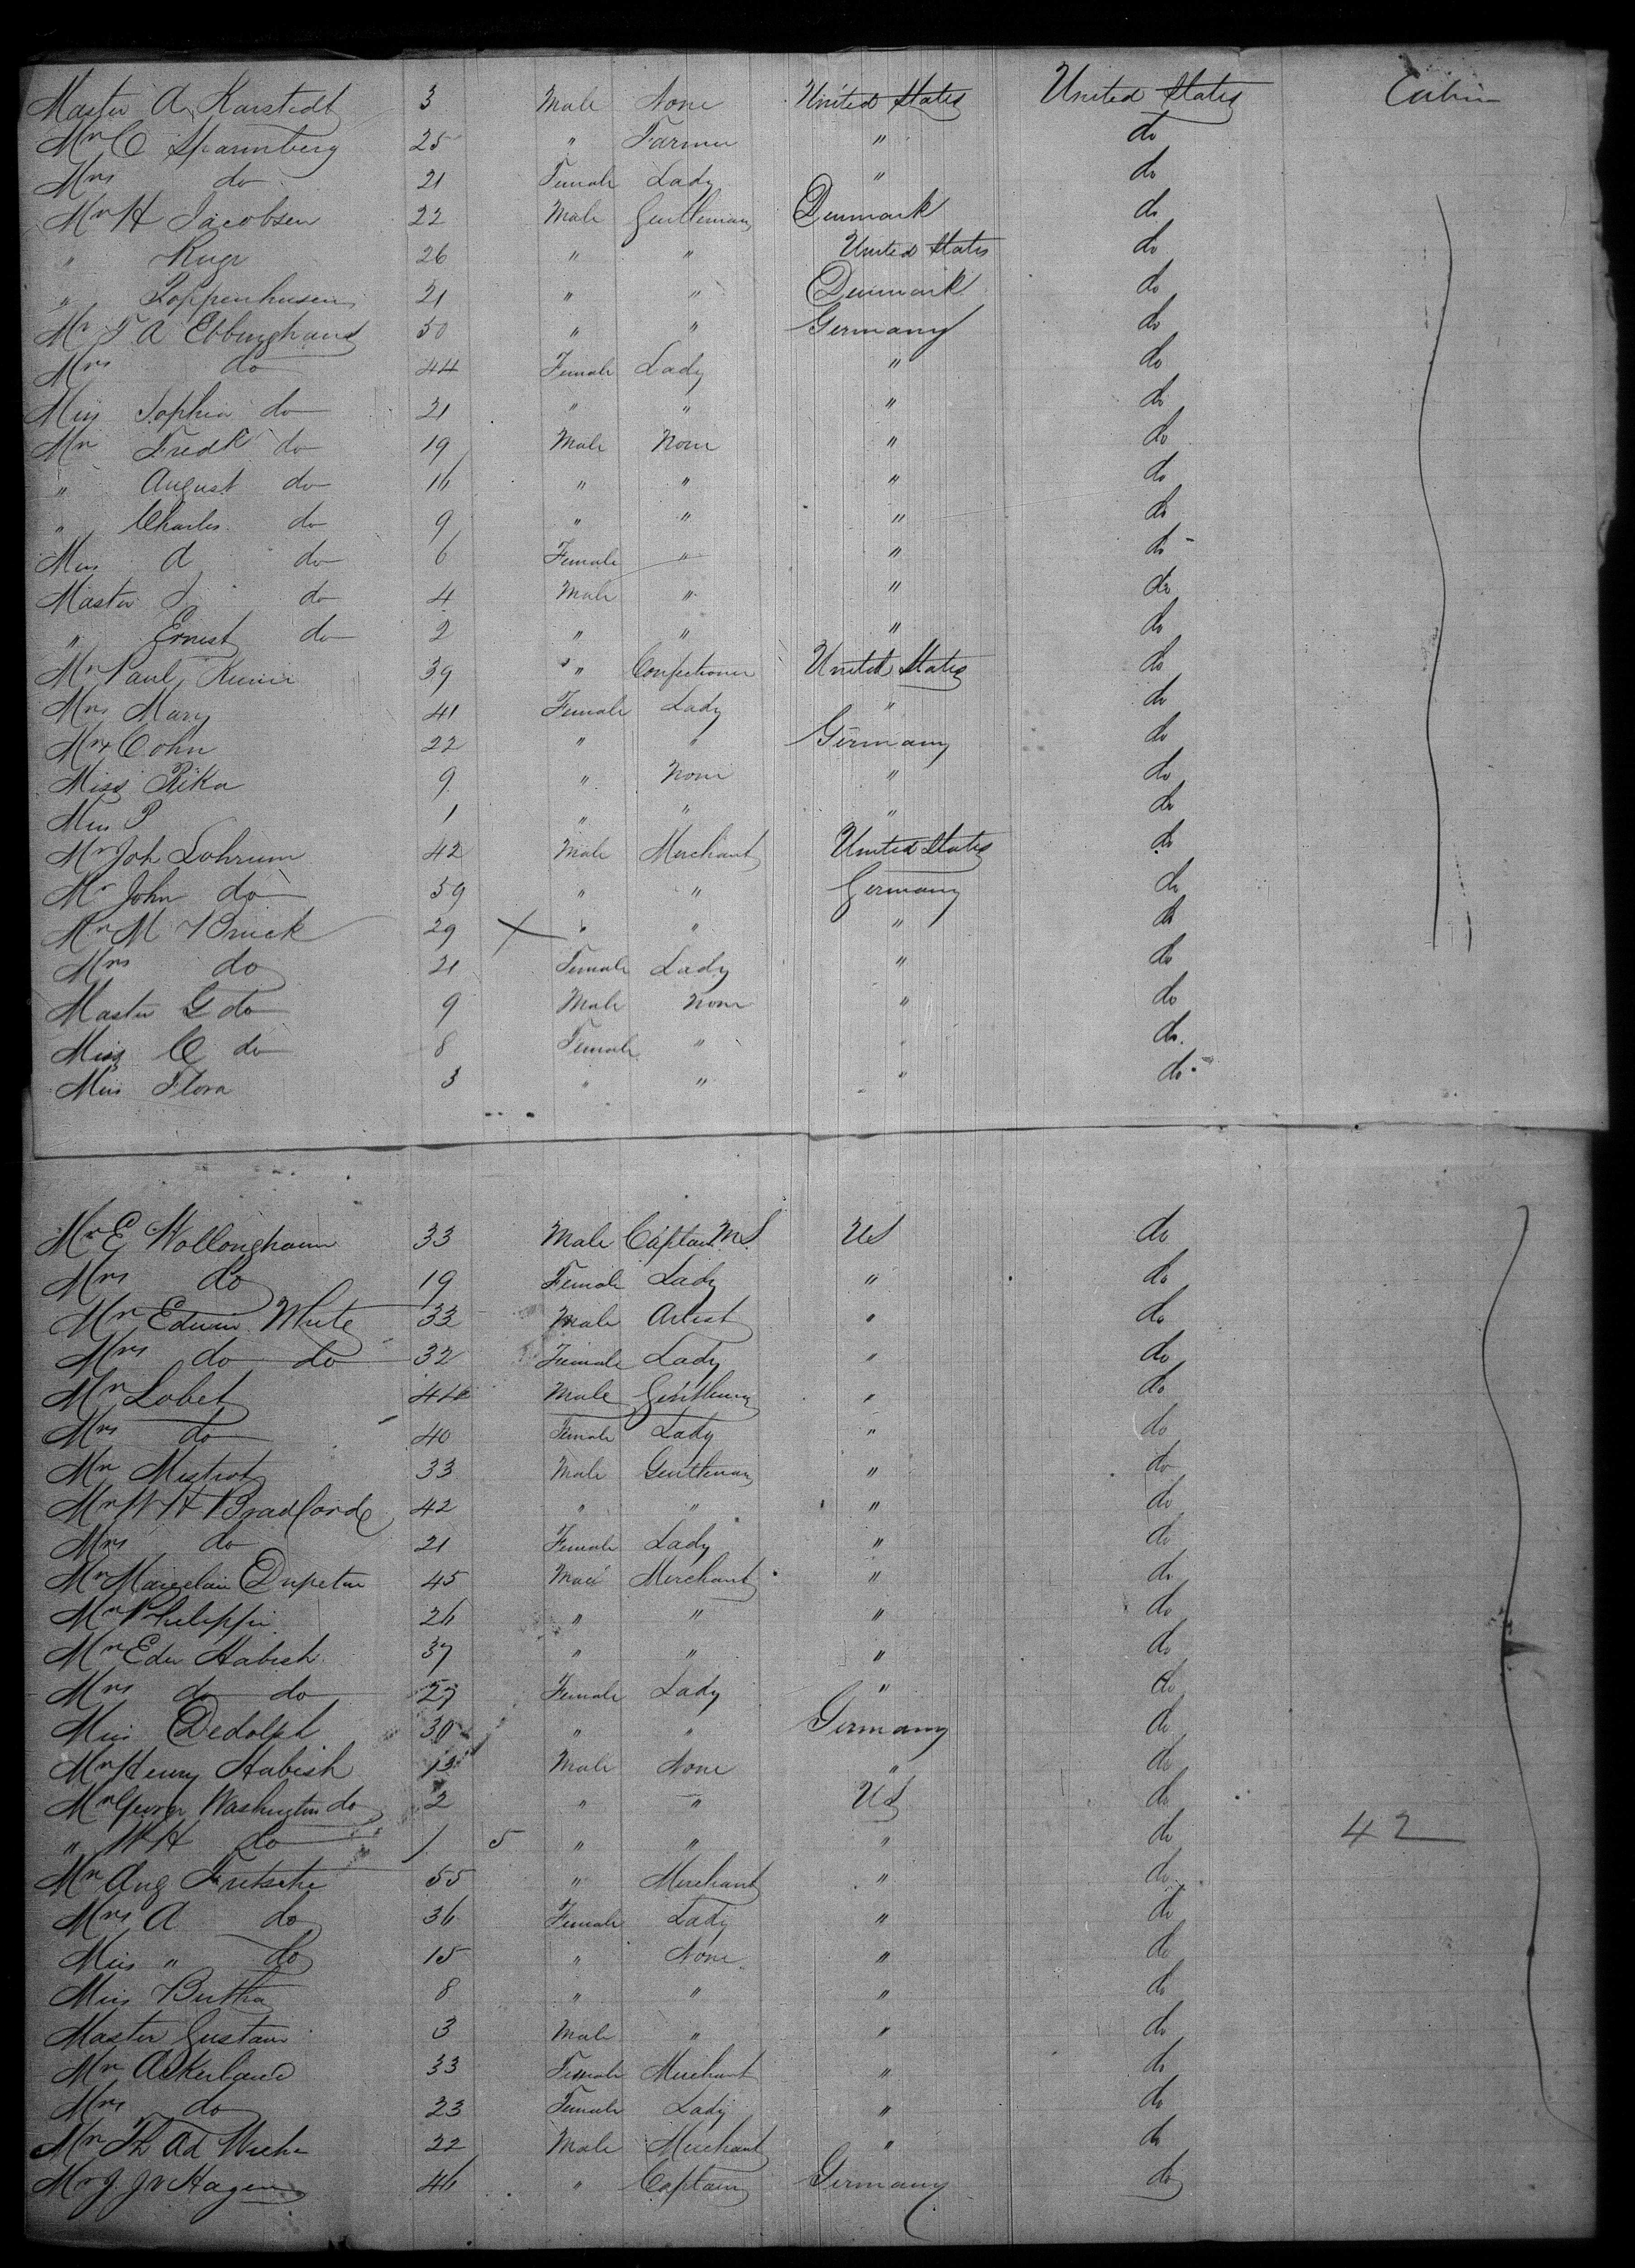 Master A Karstedt 3 Male None United States United States Cabin
Mr C Spannberg 25 " Farmer " do
Mrs do 21 Female Lady " do
Mr H Jacobsen 22 Male Gentleman Denmark do
" Ruge 26 " " United States do
" Poppenhusen 21 " " Denmark do
Mr F A Ebbinghaus 50 " " Germany do
Mrs do 44 Female Lady " do
Miss Sophia do 21 " " " do
Mr Fredk do 19 Male None " do
" August do 16 " " " do
" Charles do 9 " " " do
Miss A do 6 Female " " do
Master do 4 Male " " do
" Ernest do 2 " " " do
Mr Paul 39 " Confectioner United States do
Mrs Mary 41 Female Lady " do
Mrs Cohn 22 " " Germany do
Miss Rika 9 " None " do
Miss P 1 " " " do
Mr Joh Lohrum 42 Male Merchant United States do
Mr John do 39 " " Germany do
Mr M Brück 29 X " " " do
Mrs do 21 Female Lady " do
Master G do 9 Male None " do
Miss C do 8 Female " " do
Miss Flora 3 " " " do
Mr E 33 Male Captain US do
Mrs do 19 Female Lady " do
Mr Edwin White 33 Male Artist " do
Mrs do do 32 Female Lady " do
Mr Lobet 44 Male Gentleman " do
Mrs do 40 Female Lady " do
Mr Mistrot 33 Male Gentleman " do
Mr W H Bradford 42 " " " do
Mrs do 21 Female Lady " do
Mr Dupetur 45 Male Merchant " do
Mr Philippi 26 " " " do
Mr Edw Habish 37 " " " do
Mrs do do 27 Female Lady " do
Miss Dedolph 30 " " Germany do
Mr Henry Habish 13 Male None " do
Mr George Washington do 2 " " US do
" W H do 1 5 " " " do 42
Mr Aug Fritsche 55 " Merchant " do
Mrs A do 36 Female Lady " do
Miss " do 15 " None " do
Miss Bertha 8 " " " do
Master Gustav 3 Male " " do
Mr Akerland 33 Female Merchant " do
Mrs do 23 Female Lady " do
Mr Th Ad 22 Male Merchant " do
Mr J. Jv Hagen 46 " Captain Germany do